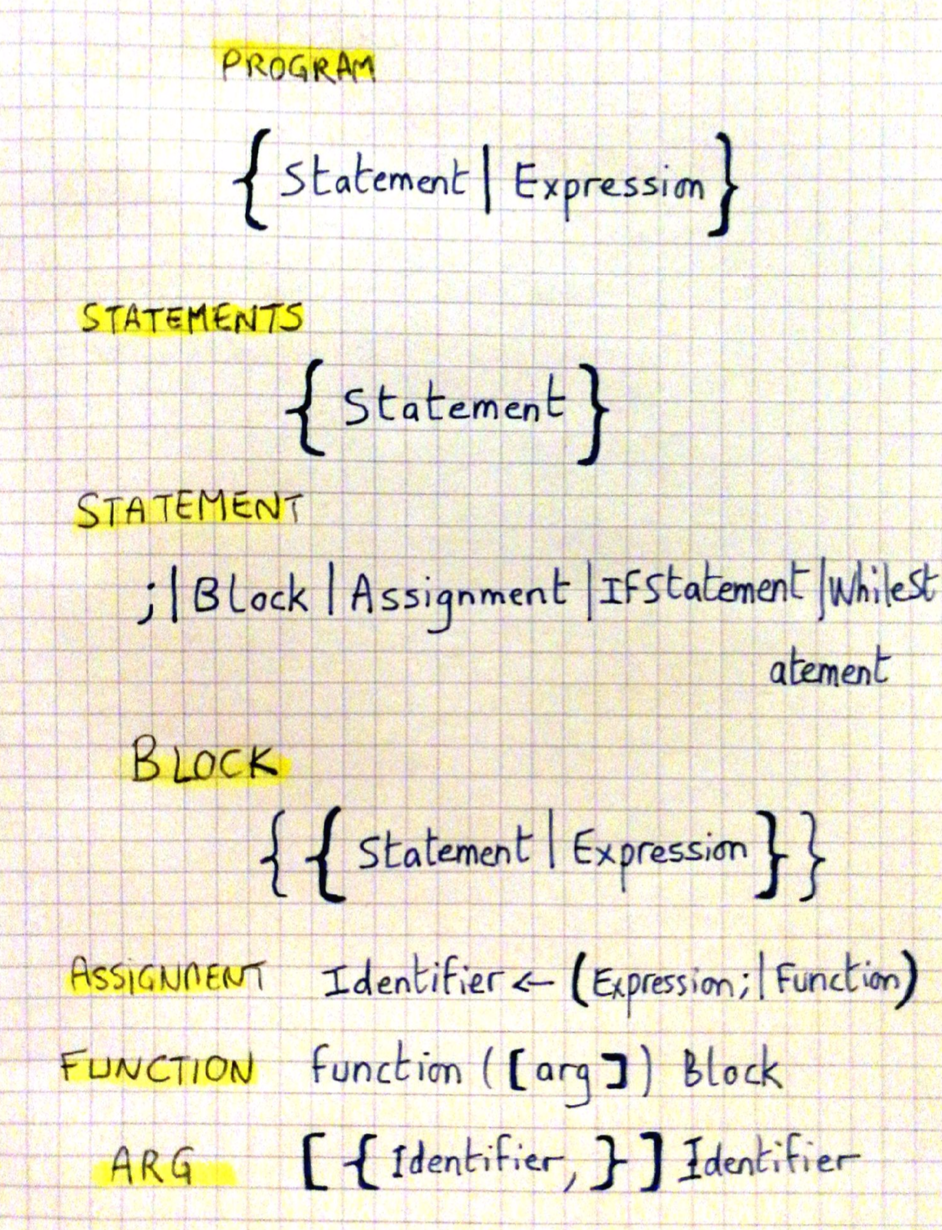 PROGRAM
{ Statement | Expression }
STATEMENTS
{ Statement }
STATEMENT
; | Block | Assignment | IFStatement | WhileSt
atement
BLOCK
{ { Statement | Expression } }
ASSIGNMENT Identifier ← (Expression; | Function)
FUNCTION function ( [ arg ] ) Block
ARG [ { Identifier, } ] Identifier